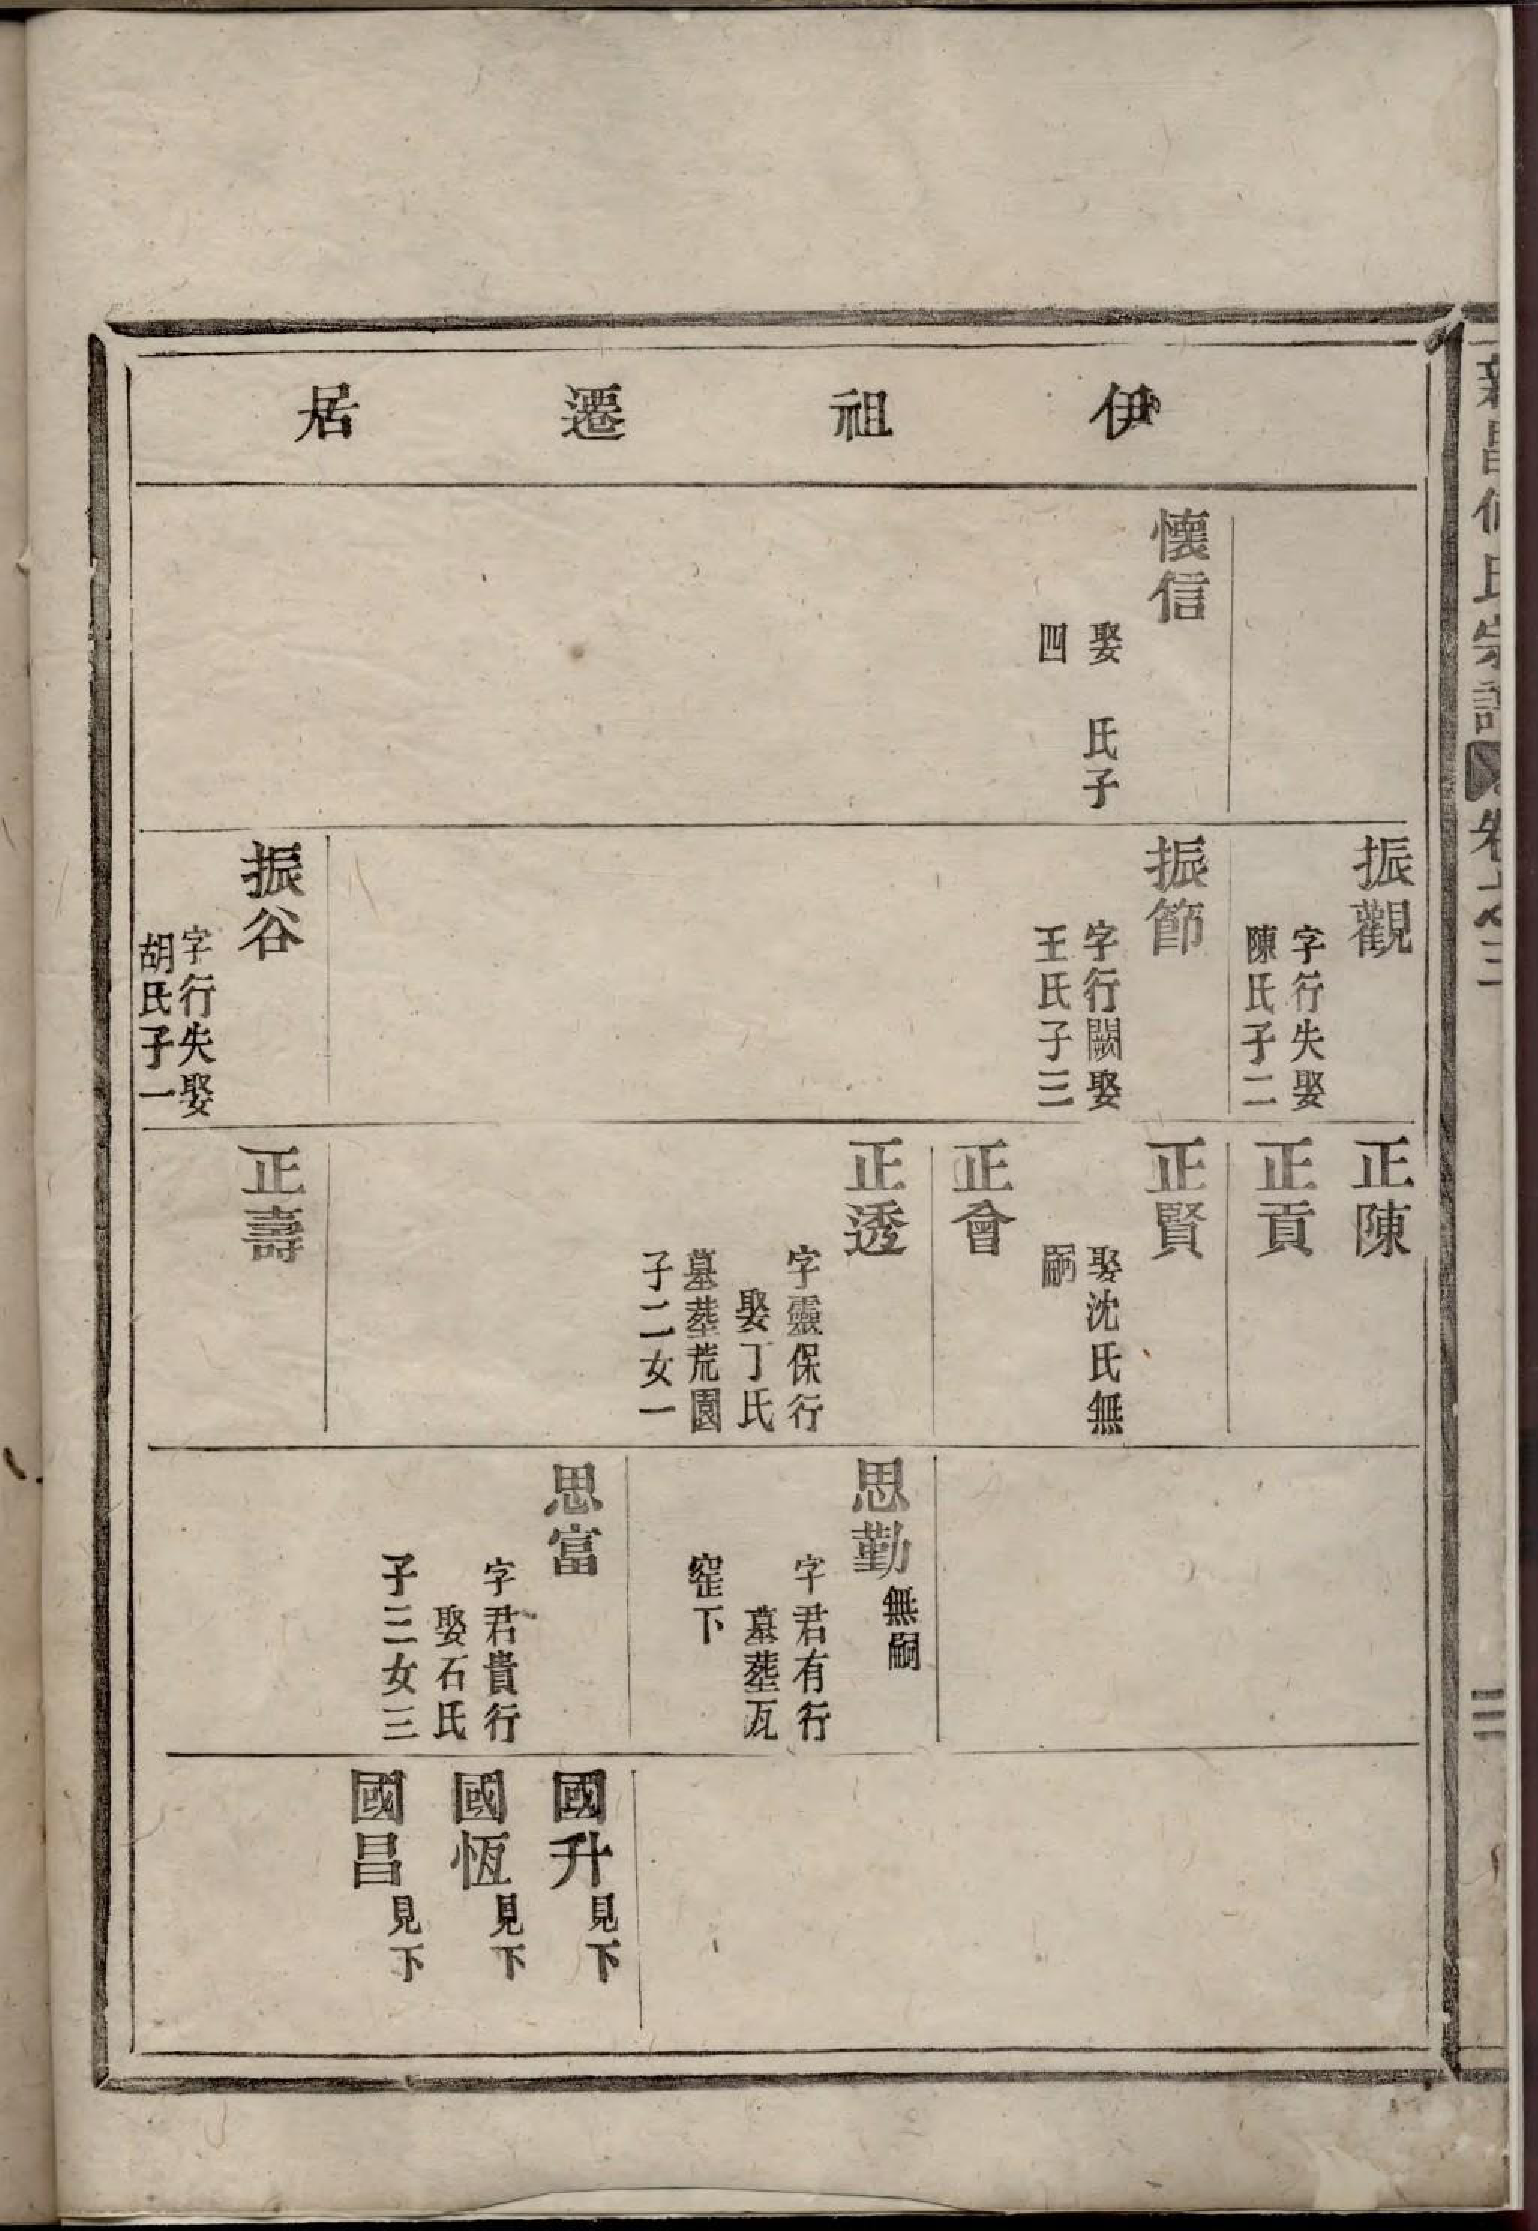 伊祖遷居
懷信
娶　氏子
四
振觀
字行失娶
陳氏子二
振節
字行闕娶
王氏子三
振谷
字行失娶
胡氏子一
正陳
正貢
正賢
娶沈氏無
嗣
正會
正透
字靈保行
娶丁氏
墓塟荒園
子二女一
正壽
思勤
無嗣
字君有行
墓塟瓦
窰下
思富
字君貴行
娶石氏
子三女三
國升
見下
國恆
見下
國昌
見下
氏宗譜
卷之三